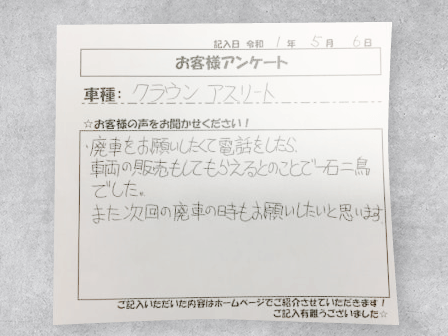 記入日 令和 1 年 5 月 6 日
お客様アンケート
車種: クラウン アスリート
☆お客様の声をお聞かせください!
・廃車をお願いしたくて電話をしたら、
車両の販売もしてもらえるとのことで一石二鳥
でした。
また次回の廃車の時もお願いしたいと思います
ご記入いただいた内容はホームページでご紹介させていただきます!
ご記入有難うございました☆